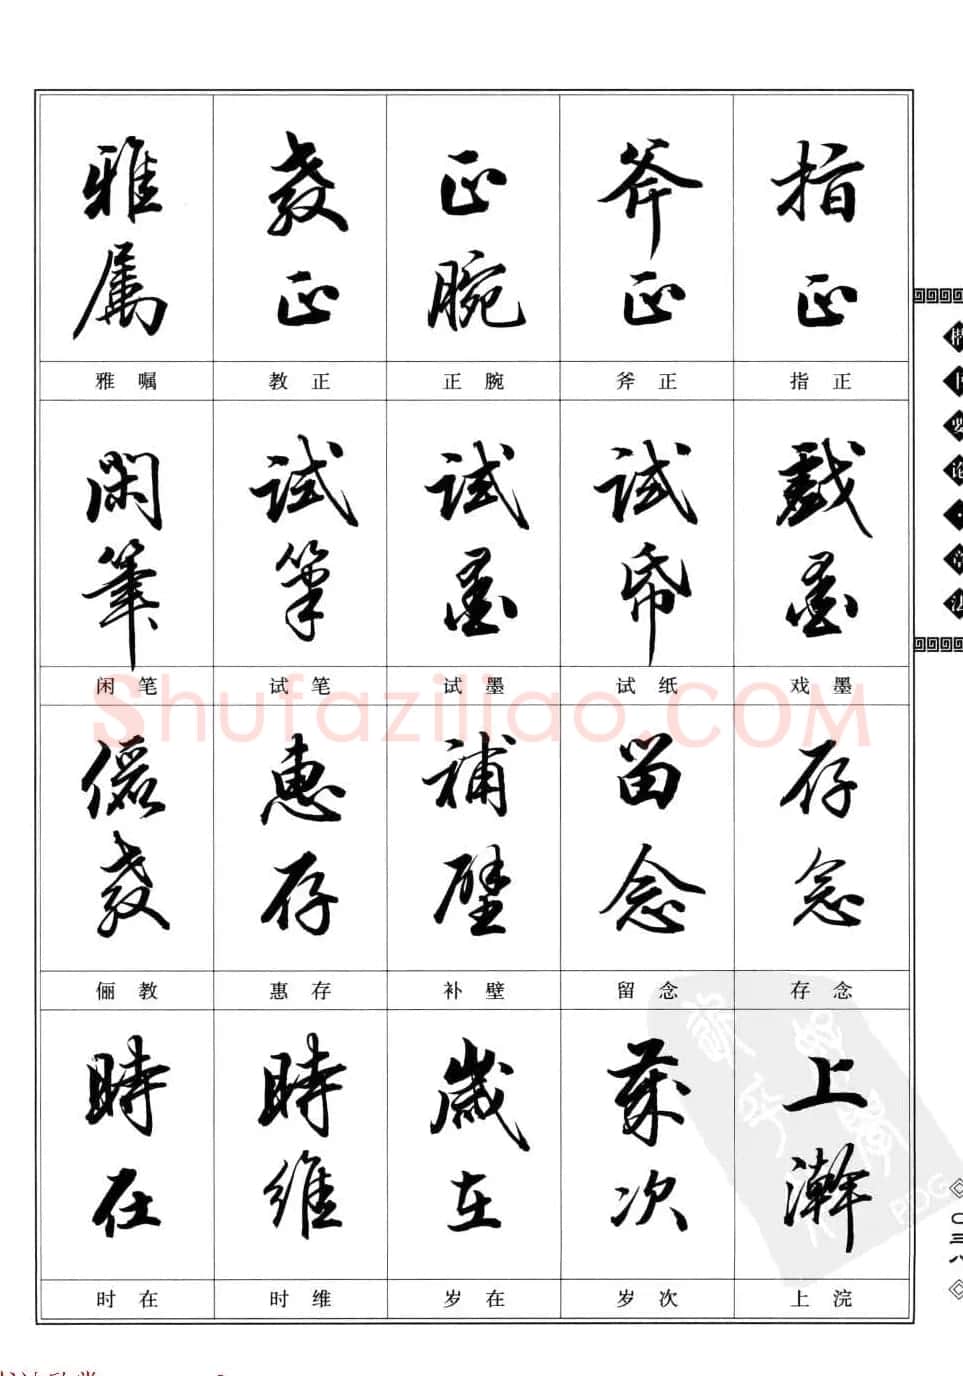 雅属 教正 正腕 斧正 指正
雅嘱 教正 正腕 斧正 指正
閑筆 试筆 试墨 试帋 戲墨
闲笔 试笔 试墨 试纸 戏墨
Shufaziliao.COM
儷教 惠存 補壁 留念 存念
俪教 惠存 补壁 留念 存念
時在 時维 歲在 歲次 上澣
时在 时维 岁在 岁次 上浣
PDG
〇三八